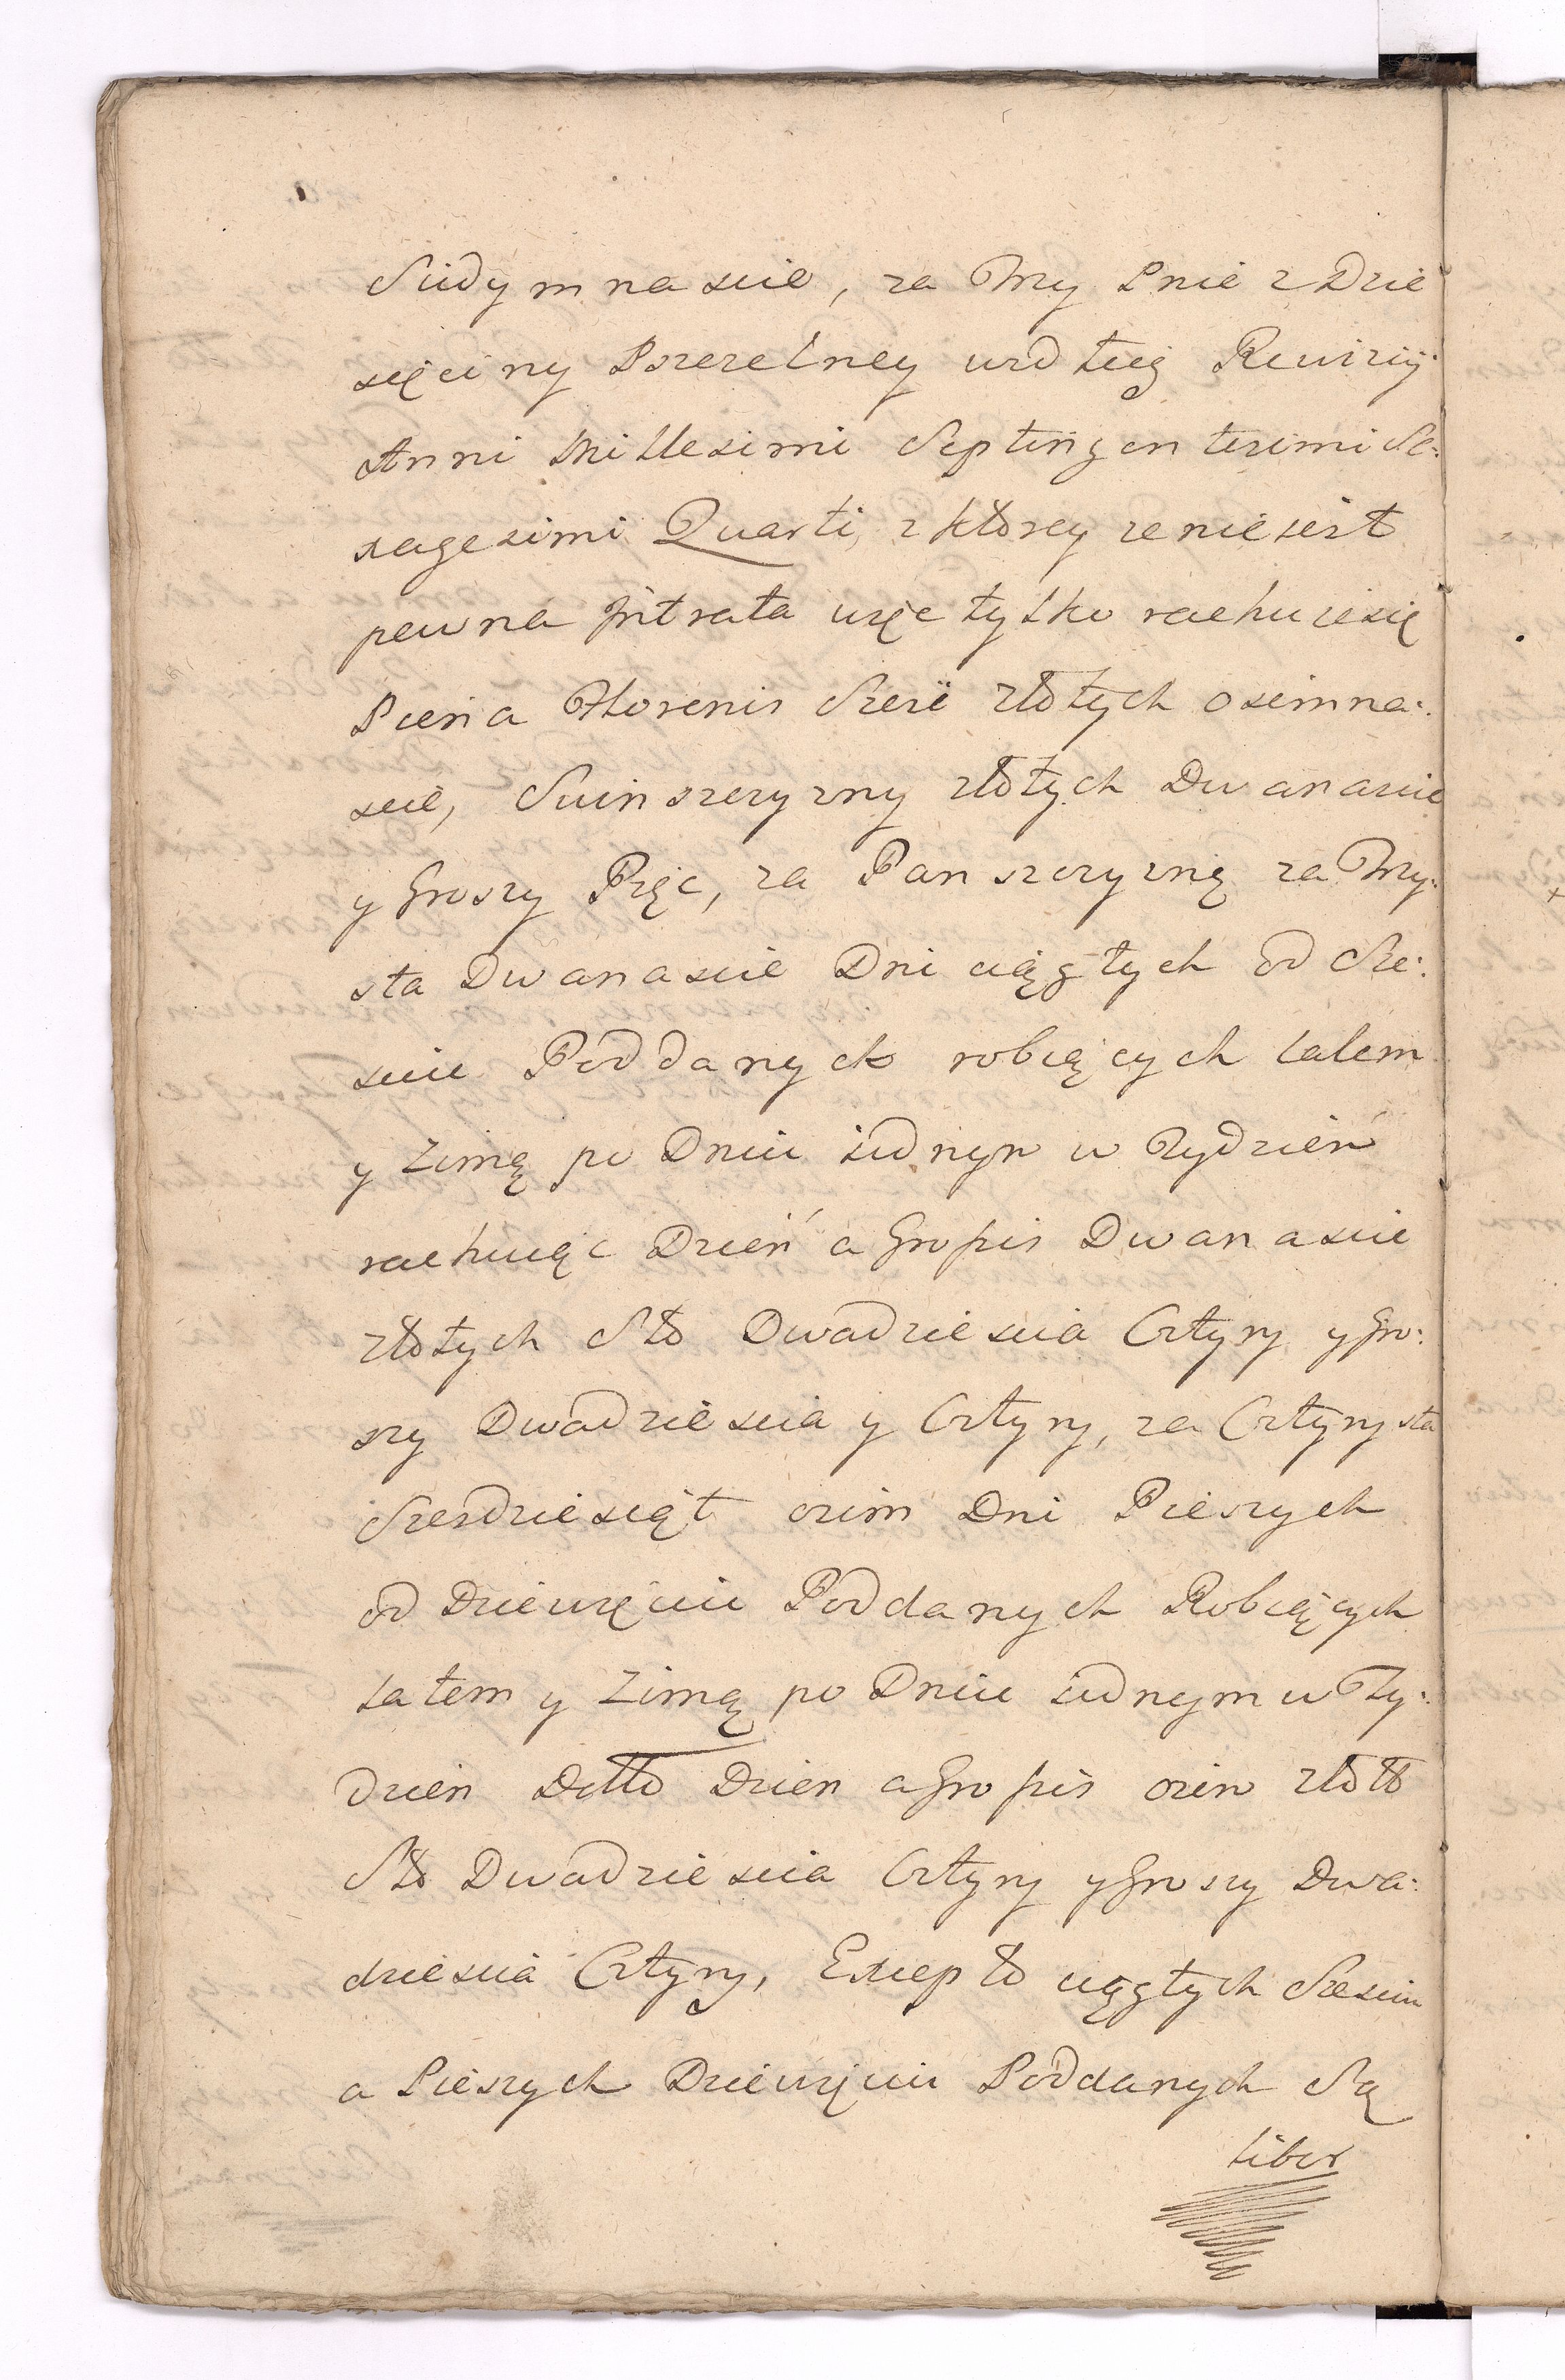 Siedymnascie, za Trzy Pnie z Dzie
sięciny Pszczelney wedłuś Rewizij
Anni Millesimi Septingentesimi Se:
xagesimi Quarti, z którey ze nie iest
pewna Intrata więc tylko rachuie się
Pień a Florenis Sześć złotych osimna:
scie, Swinszczyzny złotych Dwanascie
y Groszy Pięc, za Panszczyznę za Trzy:
sta Dwanascie Dni ciągłych od Sze:
sciu Poddanych robiących latem
y Zimą po Dniu iednym w Tydzień
rachuiąc Dzień a Grossis Dwanascie
złotych Sto Dwadziescia Cztyry y Gro:
szy Dwadziescia y Cztyry, za Cztyrysta
Szesdziesiąt osim Dni Pieszych
od Dziewięciu Poddanych Robiących
latem y Zimą po Dniu iednym w Ty:
dzien Detto Dzien a Grossis osim złott
Sto Dwadziescia Cztyry y Groszy Dwa:
dziescia Cztyry, Excepto ciągłych Szesciu
a Pieszych Dziewięciu Poddanych Są
liber